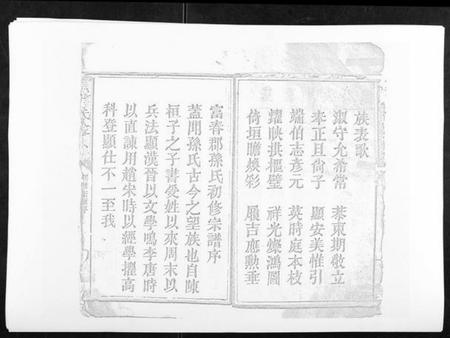 族表歌
淑守允希常　恭東期敬立
未正且尚子　顯安美惟引
端伯志彥元　英時庭本枝
耀映洪樞璧　祥光燦鴻圖
倚垣瞻煥彩　厲吉應勲垂
富春郡孫氏初修宗譜序
蓋聞孫氏古今之望族也自陳
桓子之子書受姓以來周末以
兵法顯漢晉以文學鳴李唐時
以直諫用趙宋時以經學擢高
科登顯仕不一至我